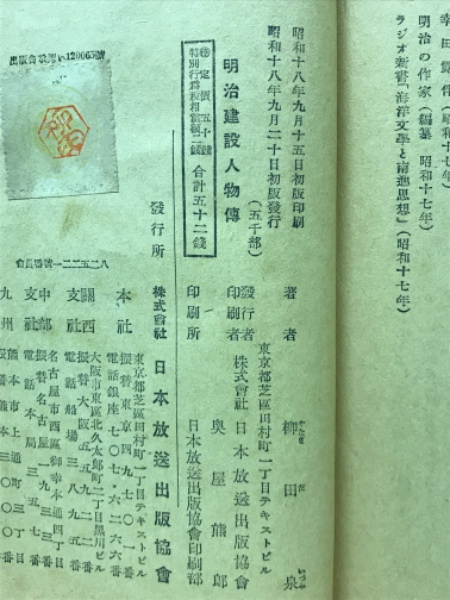 幸田露伴（昭和十七年）
明治の作家（編纂 昭和十七年）
ラジオ新書「海洋文學と南進思想」（昭和十七年）
昭和十八年九月十五日初版印刷
昭和十八年九月二十日初版發行
（五千部）
明治建設人物傳
定價五十錢
特別行爲税相當額二錢
合計五十二錢
著者 柳田泉
やなぎ だ いづみ
東京都芝區田村町一丁目テキストビル
發行者
印刷者 株式會社日本放送出版協會
奥屋熊郎
印刷所 日本放送出版協會印刷部
發行所 株式會社 日本放送出版協會
本社 東京都芝區田村町一丁目テキストビル
振替東京四九七〇一番
電話銀座七〇七・六二六六番
關西支社 大阪市東區北久太郎町二丁目黑川ビル
電話船場三八九五番
中部支社 名古屋市西區御幸本通四丁目
電話本局三五七番
九州 熊本市上通町三丁目
出版會承認い120065號
會員番號一二二五二八